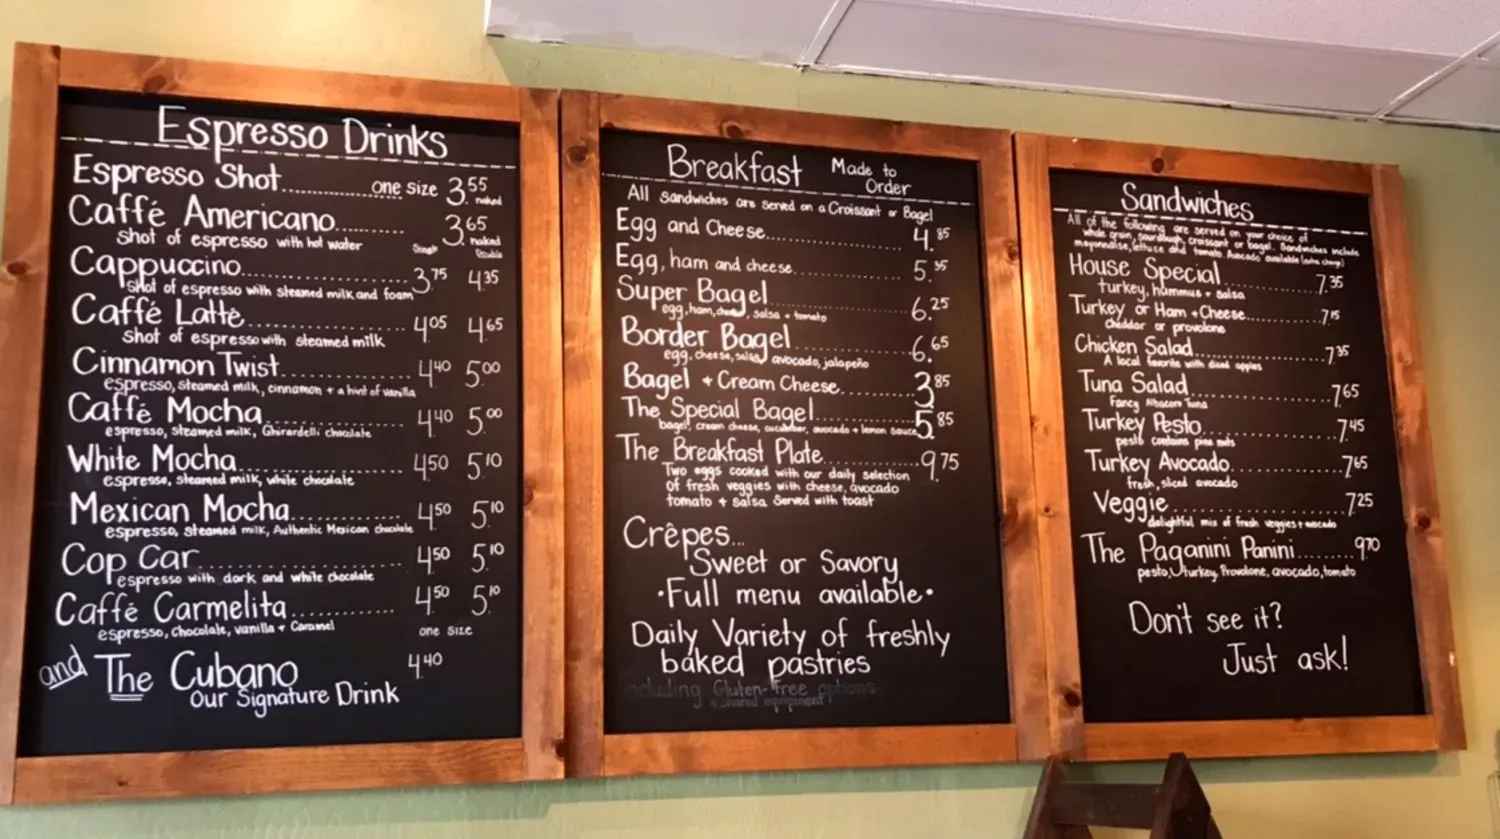 Espresso Drinks
Espresso Shot............... one size 3.55
naked
Caffé Americano.......... 3.65
naked
shot of espresso with hot water
Single Double
Cappuccino...................... 3.75 4.35
shot of espresso with steamed milk and foam
Caffé Latte...................... 4.05 4.65
shot of espresso with steamed milk
Cinnamon Twist................ 4.40 5.00
espresso, steamed milk, cinnamon + a hint of vanilla
Caffé Mocha.................... 4.40 5.00
espresso, steamed milk, Ghirardelli chocolate
White Mocha..................... 4.50 5.10
espresso, steamed milk, white chocolate
Mexican Mocha................ 4.50 5.10
espresso, steamed milk, Authentic Mexican chocolate
Cop Car............................ 4.50 5.10
espresso with dark and white chocolate
Caffé Carmelita............... 4.50 5.10
espresso, chocolate, vanilla + Caramel
one size
and The Cubano 4.40
Our Signature Drink
Breakfast Made to Order
All sandwiches are served on a Croissant or Bagel
Egg and Cheese.................. 4.85
Egg, ham and cheese............... 5.35
Super Bagel.................... 6.25
egg, ham, cheese, salsa + tomato
Border Bagel................... 6.65
egg, cheese, salsa, avocado, jalapeño
Bagel + Cream Cheese........... 3.85
The Special Bagel.............. 5.85
bagel, cream cheese, cucumber, avocado + lemon sauce
The Breakfast Plate.............. 9.75
Two eggs cooked with our daily selection
of fresh veggies with cheese, avocado
tomato + salsa Served with toast
Crêpes...
Sweet or Savory
•Full menu available•
Daily Variety of freshly
baked pastries
including Gluten-Free options
shared equipment
Sandwiches
All of the following are served on your choice of
whole grain, sourdough, croissant or bagel. Sandwiches include
mayonnaise, lettuce and tomato. Avocado available (extra charge)
House Special.................. 7.35
turkey, hummus + salsa
Turkey or Ham + Cheese............ 7.15
cheddar or provolone
Chicken Salad................... 7.35
A local favorite with diced apples
Tuna Salad...................... 7.65
Fancy Albacore Tuna
Turkey Pesto.................... 7.45
pesto contains pine nuts
Turkey Avocado.................. 7.65
fresh, sliced avocado
Veggie.......................... 7.25
delightful mix of fresh veggies + avocado
The Paganini Panini......... 9.70
pesto, turkey, Provolone, avocado, tomato
Don't see it?
Just ask!